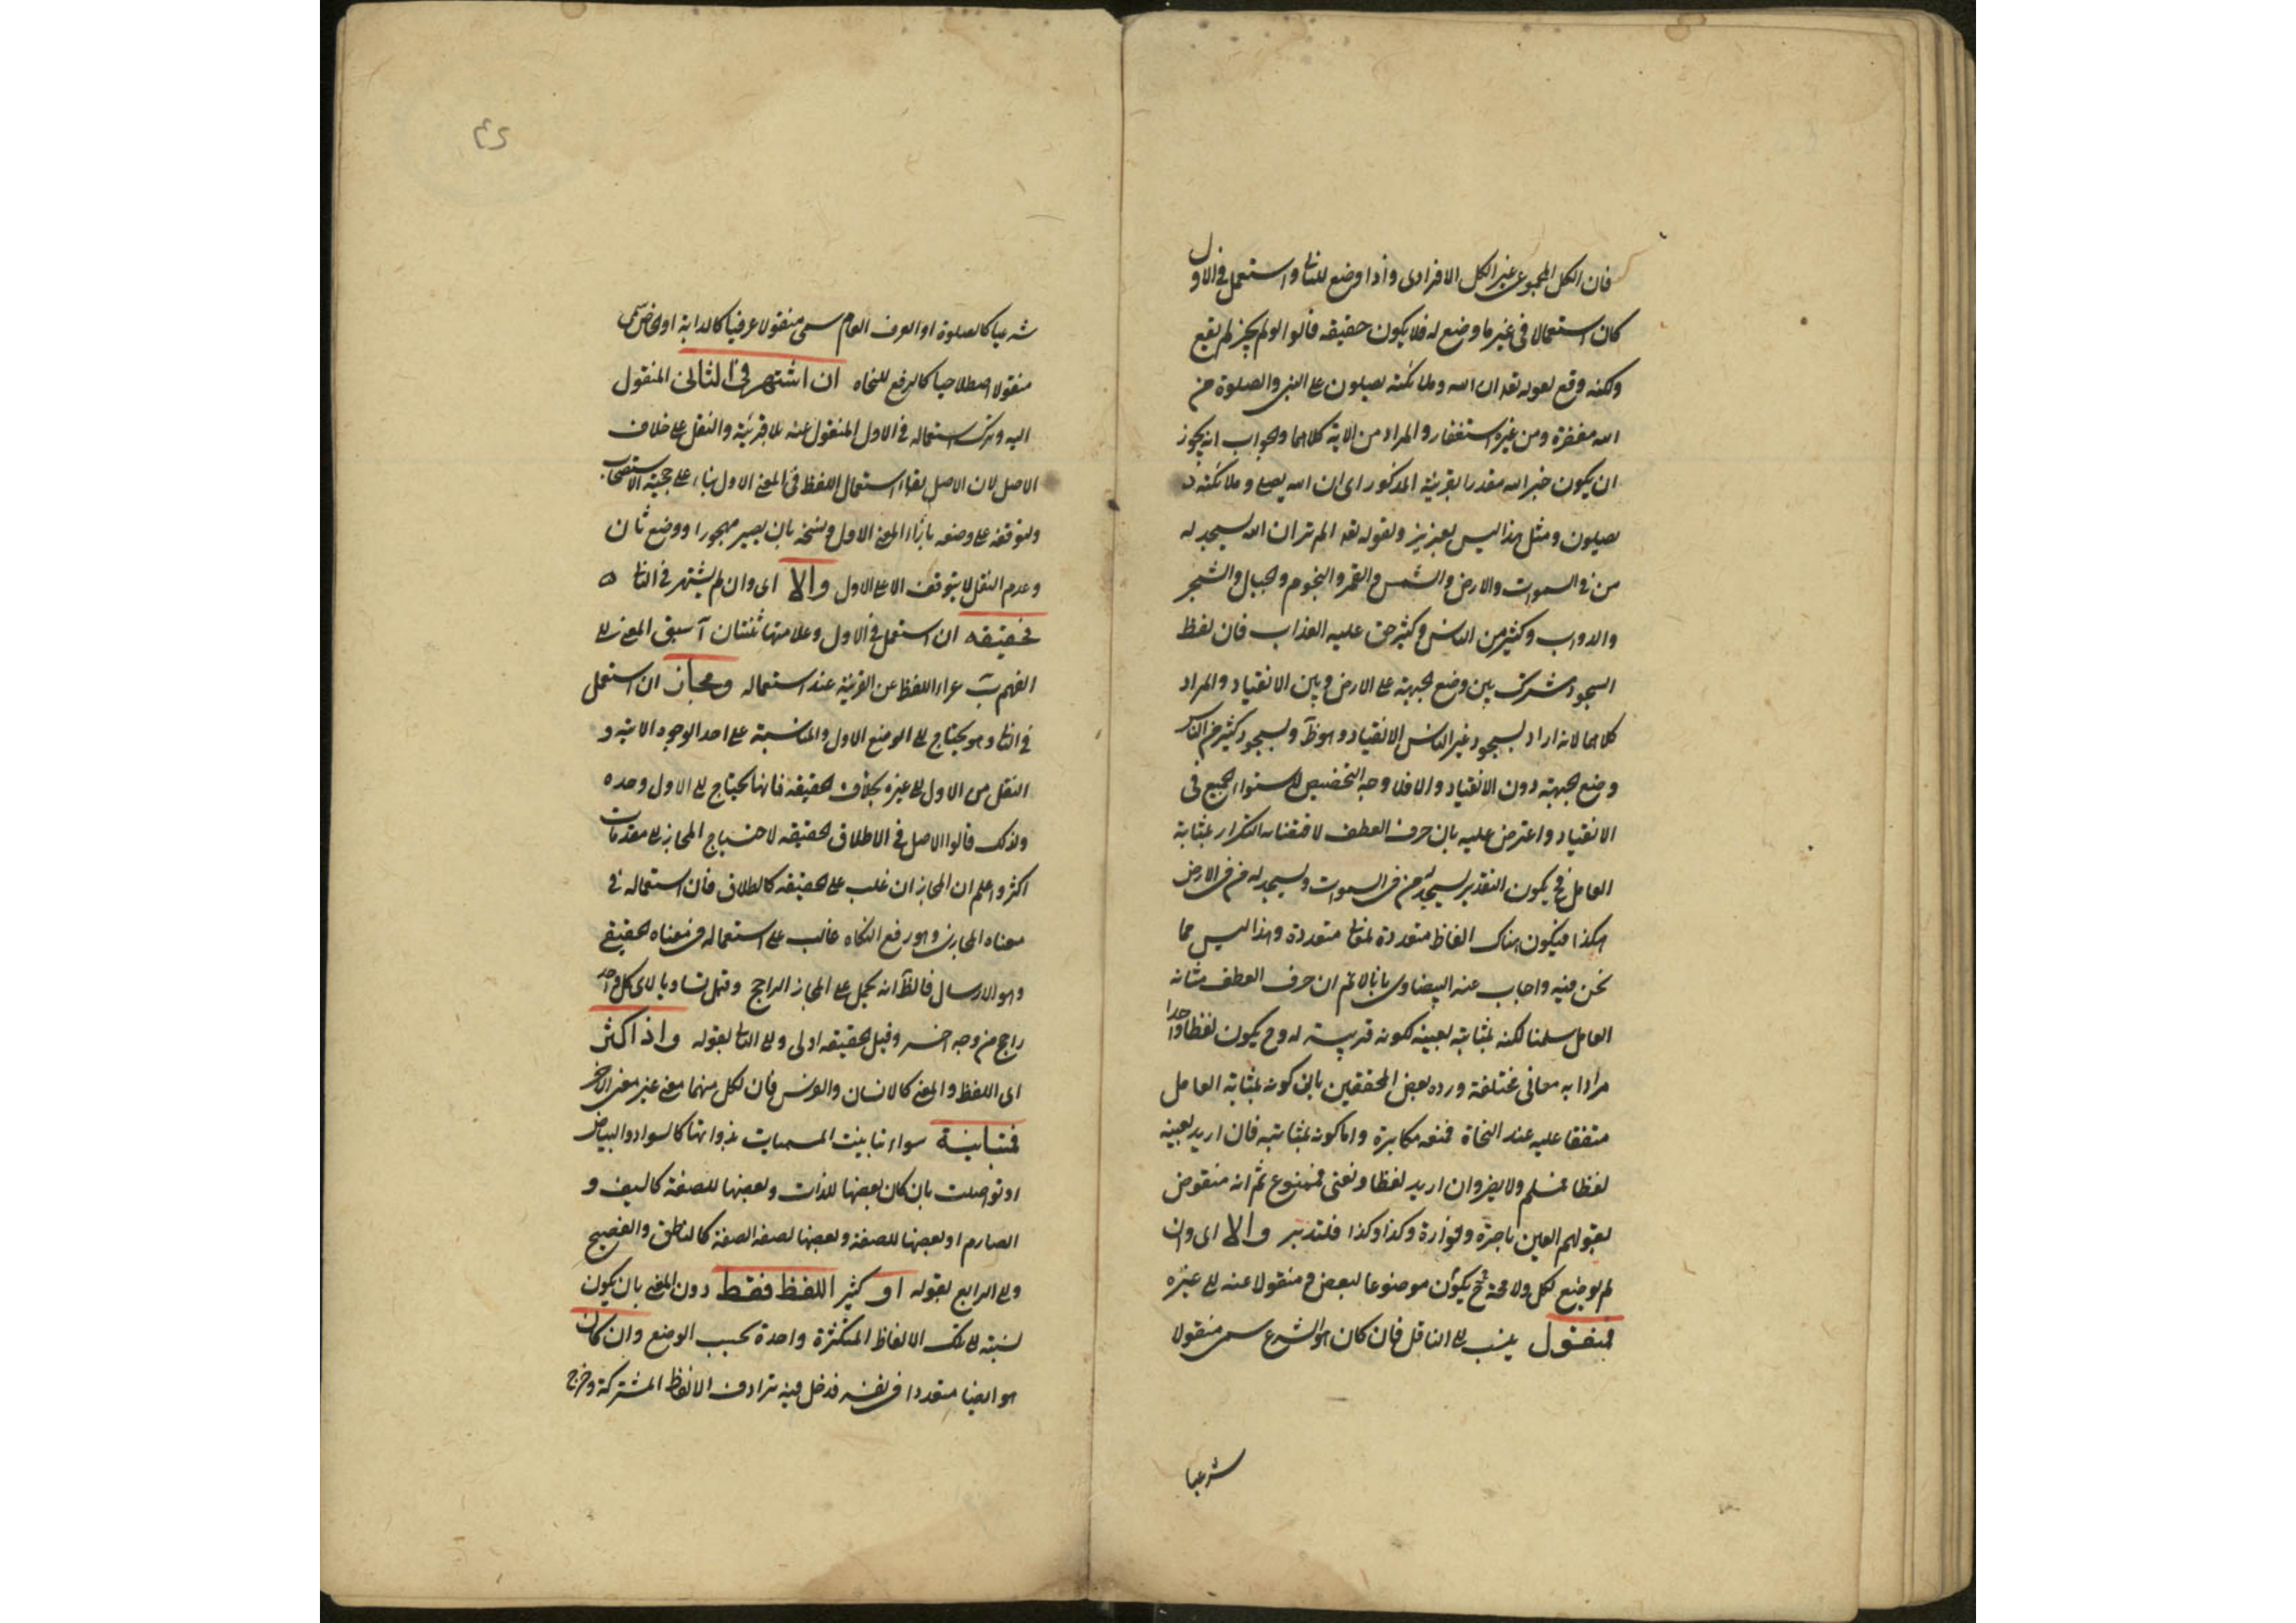 فان الكل المجموعى غير الكل الافرادى واذا وضع للثانى واستعمل فى الاول
كان استعمالا فى غير ما وضع له فلا يكون حقيقه قالوا لو لم يجز لم يقع
ولكنه وقع لقوله تعه ان الله وملائكته يصلون على النبى والصلوة من
الله مغفرة ومن غيره استغفار والمراد من الاية كلاهما والجواب انه يجوز
ان يكون خبر الله مقدرا بقرينة المذكور اى ان الله يصلى وملائكته
يصلون ومثل هذا ليس بعزيز ولقوله تعه الم تر ان الله يسجد له
من فى السموات والارض والشمس والقمر والنجوم والجبال والشجر
والدواب وكثير من الناس وكثير حق عليه العذاب فان لفظ
السجود مشترك بين وضع الجبهة على الارض وبين الانقياد والمراد
كلاهما لانه اراد بسجود غير الناس الانقياد وهو ظ وبسجود كثير من الناس
وضع الجبهة دون الانقياد والا فلا وجه التخصيص لاستواء الجميع فى
الانقياد واعترض عليه بان حرف العطف لاقتضائه التكرار بمثابة
العامل فح يكون التقدير يسجد له من فى السموات ويسجد له من فى الارض
هكذا فيكون هناك الفاظ متعددة لمعان متعددة وهذا ليس مما
نحن فيه واجاب عنه البيضاوى بانا لا نم ان حرف العطف مثابه
العامل سلمنا لكنه بمثابته بعينه لكونه قرينة له وح يكون لفظا واحدا
مرادا به معانى مختلفة ورده بعض المحققين بان كونه بمثابة العامل
متفقا عليه عند النحاة فمنعه مكابرة واما كونه بمثابته فان اريد بعينه
لفظا فمسلم ولا يضر وان اريد لفظا ومعنى فممنوع ثم انه منقوض
بقولهم العين باصرة وفوارة وكذا وكذا فلتدبر والا اى وان
لم يوضع لكل ولا محة فح يكون موضوعا لبعض ومنقولا عنه الى غيره
فمنقول ينسب الى الناقل فان كان هو الشرع سمى منقولا
شرعيا
٤٢
شرعيا كالصلوة او العرف العام سمى منقولا عرفيا كالدابة او الخاص سمى
منقولا اصطلاحيا كالرفع للنحاه ان اشتهر فى الثانى المنقول
اليه وترك استعماله فى الاول المنقول عنه بلا قرينة والنقل على خلاف
الاصل لان الاصل بقاء استعمال اللفظ فى المعنى الاول بناء على حجية الاستصحاب
ولتوقفه على وضعه بازاء المعنى الاول ونسخه بان يصير مهجورا ووضع ثان
وعدم النقل لا يتوقف الا على الاول والا اى وان لم يشتهر فى الثانى
فحقيقه ان استعمل فى الاول وعلامتها ثنتان آ سبق المعنى الى
الفهم ب عراء اللفظ عن القرينة عند استعماله ومجاز ان استعمل
فى الثانى وهو يحتاج الى الوضع الاول والمناسبة على احد الوجوه الاتية و
النقل من الاول الى غيره بخلاف الحقيقه فانها تحتاج الى الاول وحده
ولذلك قالوا الاصل فى الاطلاق الحقيقه لاحتياج المجاز الى مقدمات
اكثر واعلم ان المجاز ان غلب على الحقيقه كالطلاق فان استعماله فى
معناه المجازى وهو رفع النكاه غالب على استعماله فى معناه الحقيقى
وهو الارسال فالظ انه يحمل على المجاز الراجح وقيل تساويا لان كل واحد
راجح من وجه اخر وقيل الحقيقه اولى والى الثالث بقوله واذا كثر
اى اللفظ والمعنى كالانسان والفرس فان لكل منهما معنى غير معنى الاخر
فمتباينة سواء تباينت المسميات بذواتها كالسواد والبياض
او تواصلت بان كان بعضها للذات وبعضها للصفة كالسيف و
الصارم او بعضها للصفة وبعضها لصفة الصفة كالناطق والفصيح
والى الرابع بقوله او كثير اللفظ فقط دون المعنى بان يكون
نسبته الى تلك الالفاظ المتكثرة واحدة بحسب الوضع وان كان
هو ايضا متعددا فى نفسه فدخل فيه ترادف الالفاظ المشتركة وخرج